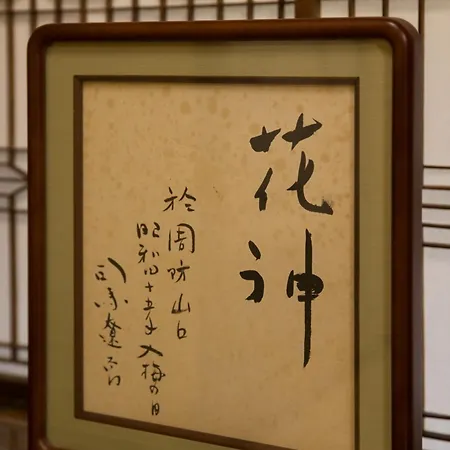 花神
於周防山口
昭和四十五年大梅の日
司馬遼太郎